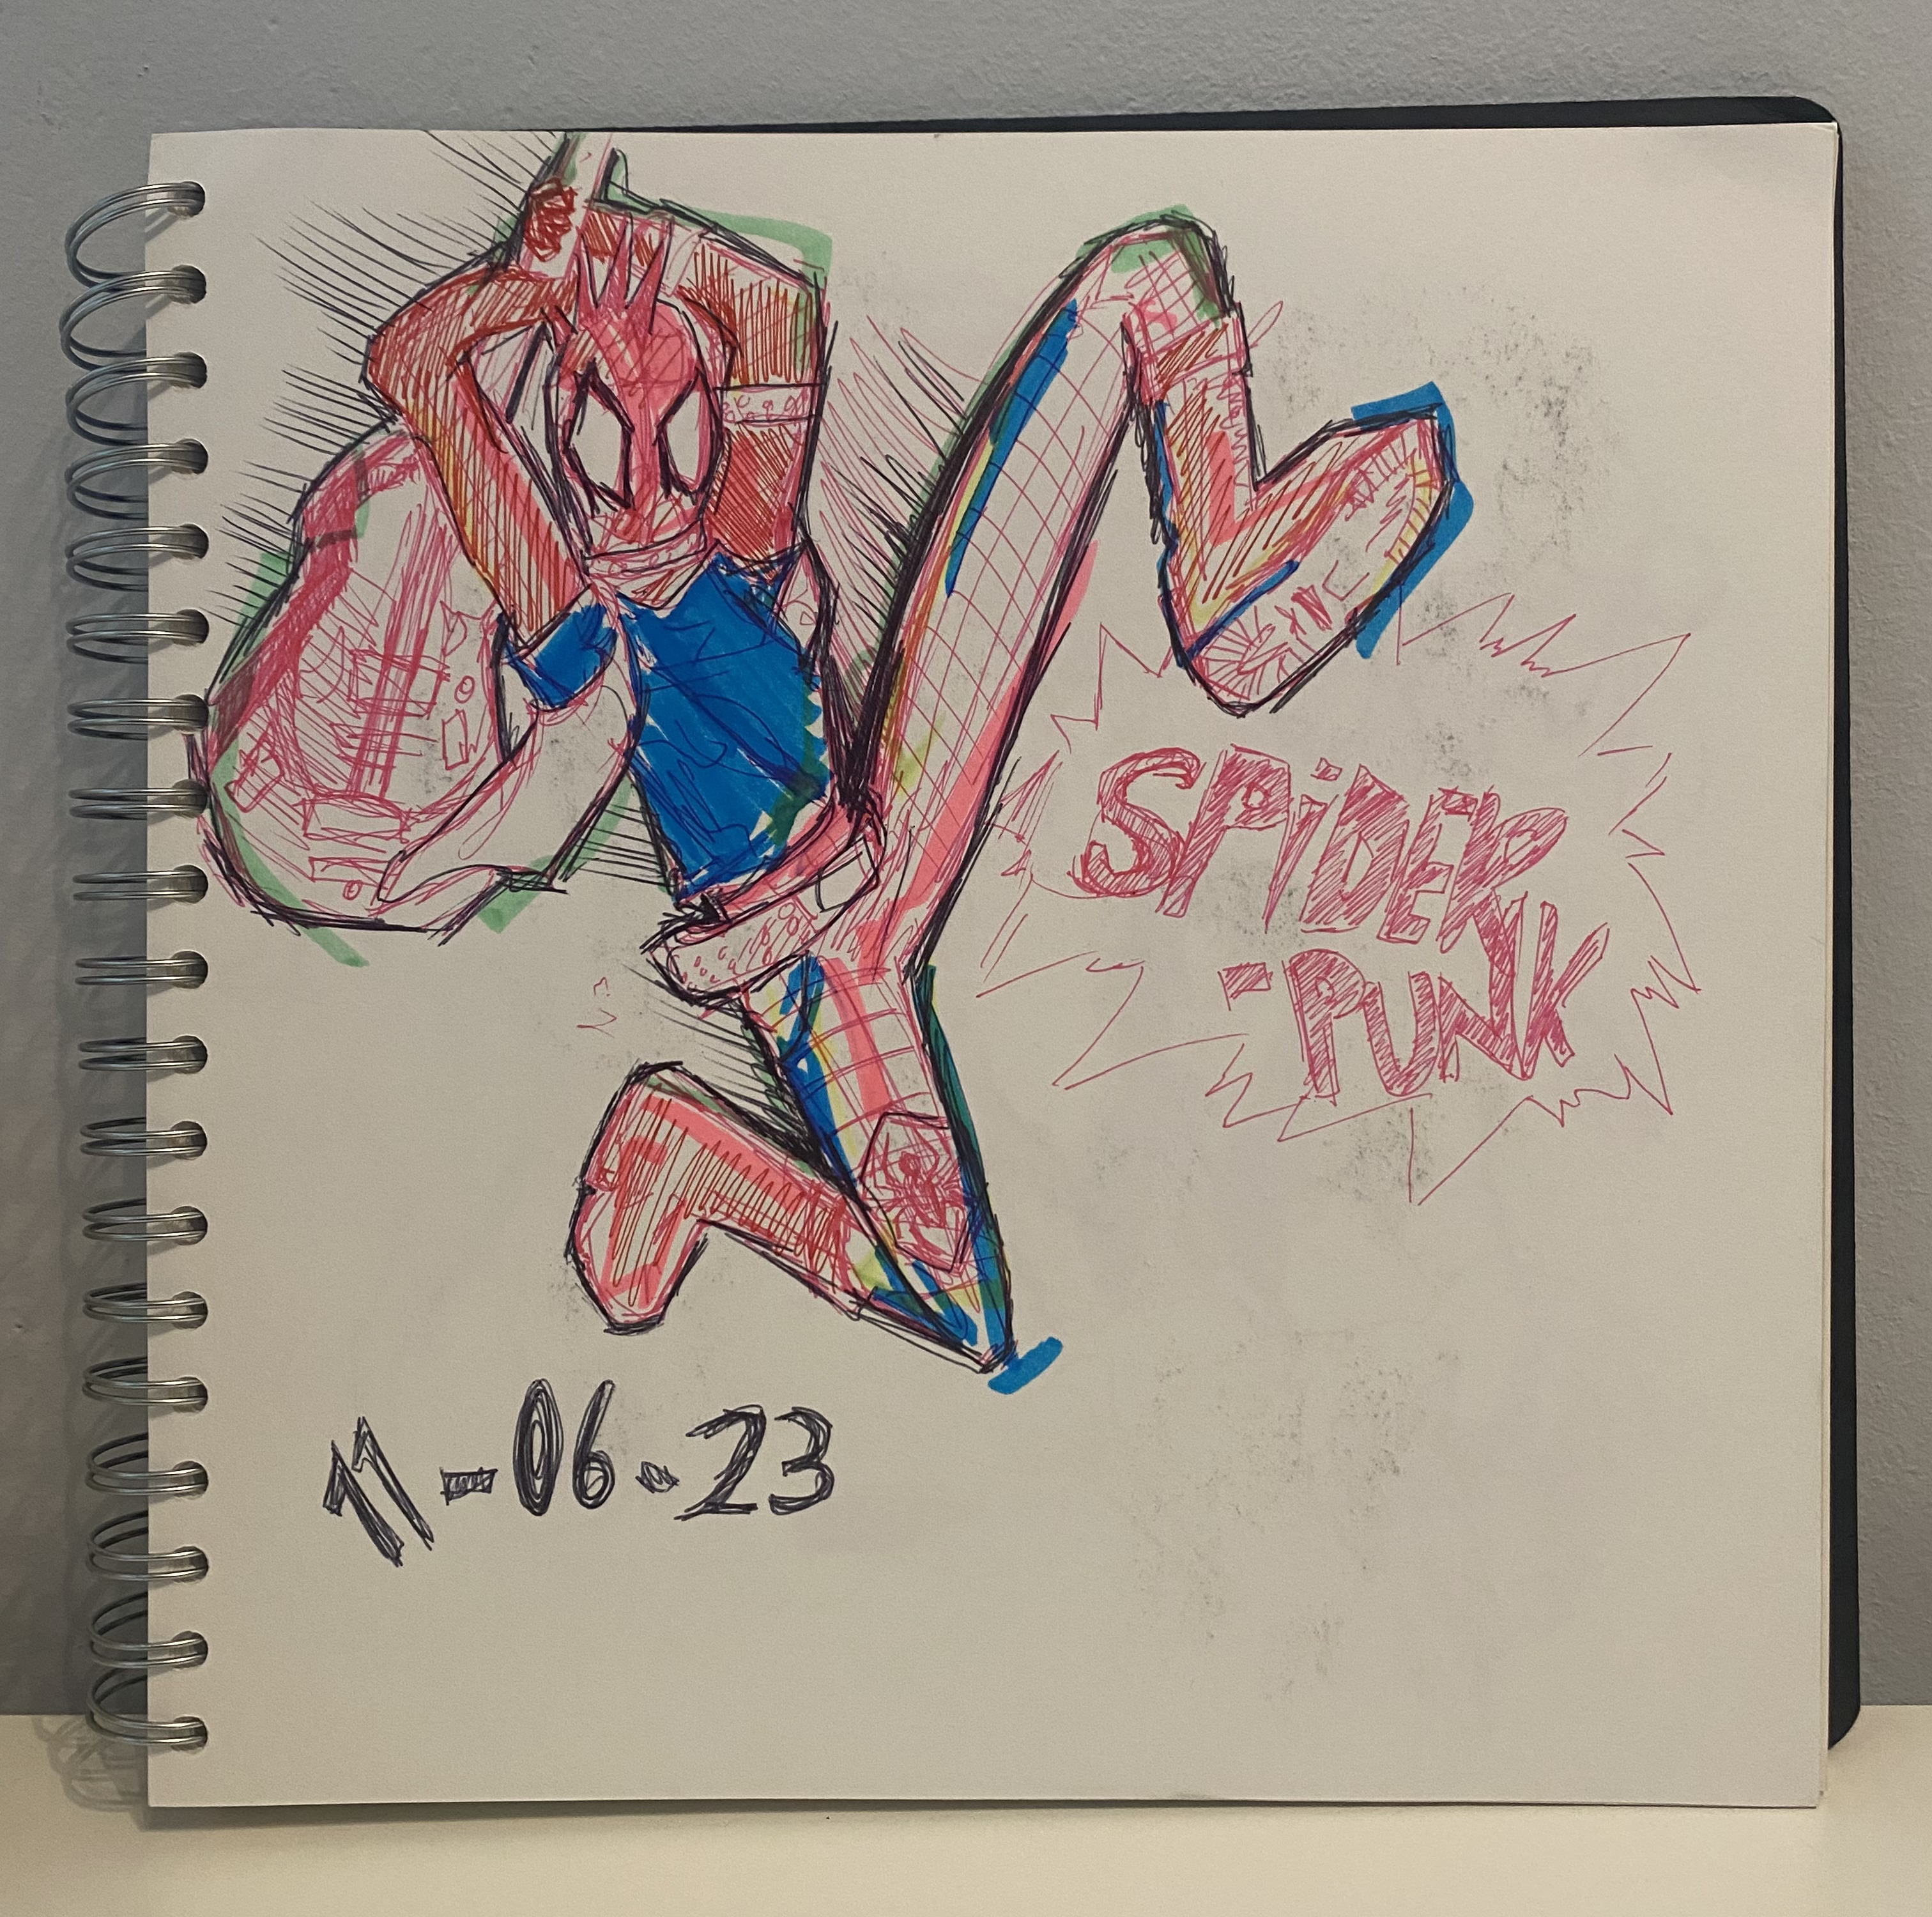 SPiDER
-PUNK
11-06-23